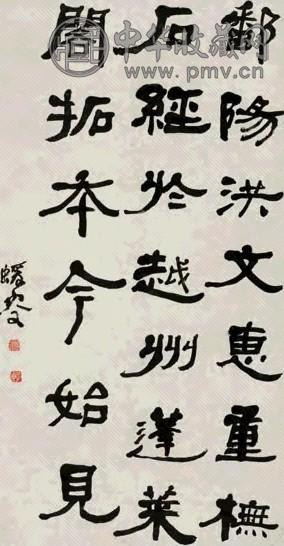 中华收藏网
www.pmv.cn
鄱陽洪文惠重橅
石經於越州蓬萊
閣拓本今始見
蝯叟